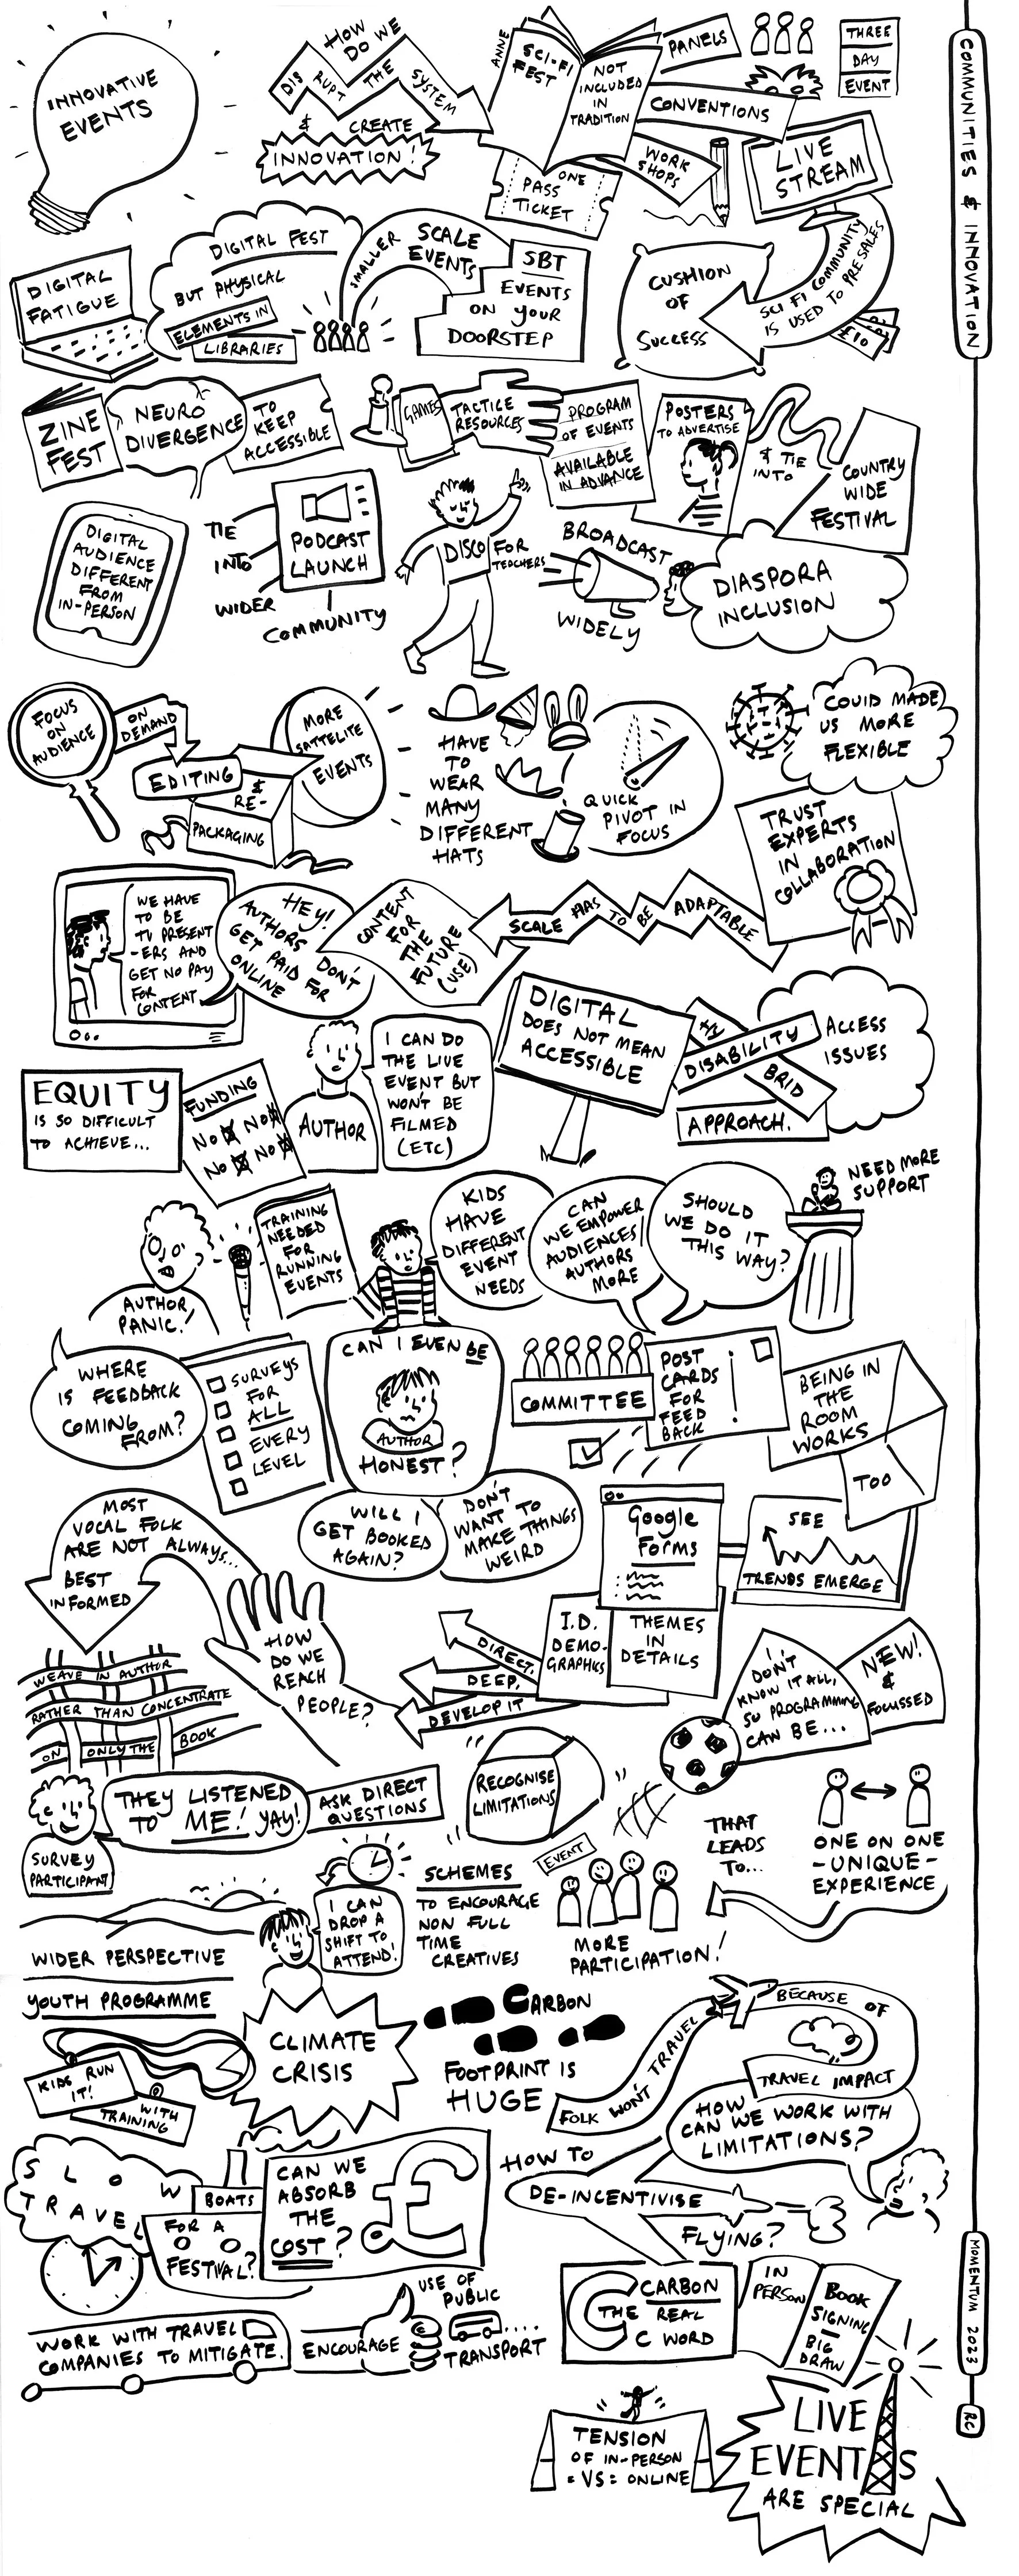 INNOVATIVE
EVENTS
HOW
DO WE
DIS
RUPT
THE
SYSTEM
& CREATE
INNOVATION!
ANNE
SCI-FI
FEST
NOT
INCLUDED
IN
TRADITION
PANELS
CONVENTIONS
WORK
SHOPS
ONE
PASS
TICKET
THREE
DAY
EVENT
LIVE
STREAM
COMMUNITIES & INNOVATION
DIGITAL
FATIGUE
DIGITAL FEST
BUT PHYSICAL
ELEMENTS IN
LIBRARIES
SMALLER SCALE
EVENTS
SBT
EVENTS
ON YOUR
DOORSTEP
CUSHION
OF
SUCCESS
SCI FI COMMUNITY
IS USED TO PRESALES
£10
ZINE
FEST
NEURO
DIVERGENCE
TO
KEEP
ACCESSIBLE
GAMES
TACTILE
RESOURCES
PROGRAM
OF EVENTS
AVAILABLE
IN ADVANCE
POSTERS
TO ADVERTISE
& TIE
INTO
COUNTRY
WIDE
FESTIVAL
DIGITAL
AUDIENCE
DIFFERENT
FROM
IN-PERSON
TIE
INTO
WIDER
COMMUNITY
PODCAST
LAUNCH
DISCO FOR
TEACHERS
BROADCAST
WIDELY
DIASPORA
INCLUSION
FOCUS
ON
AUDIENCE
ON
DEMAND
EDITING
&
RE-
PACKAGING
MORE
SATTELITE
EVENTS
HAVE
TO
WEAR
MANY
DIFFERENT
HATS
QUICK
PIVOT IN
FOCUS
COVID MADE
US MORE
FLEXIBLE
TRUST
EXPERTS
IN
COLLABORATION
WE HAVE
TO BE
TV PRESENT
-ERS AND
GET NO PAY
FOR
CONTENT
HEY!
AUTHORS DON'T
GET PAID FOR
ONLINE
CONTENT
FOR
THE
FUTURE
(USE)
SCALE HAS TO BE ADAPTABLE
DIGITAL
DOES NOT MEAN
ACCESSIBLE
HY
BRID
DISABILITY
APPROACH.
ACCESS
ISSUES
EQUITY
IS SO DIFFICULT
TO ACHIEVE...
FUNDING
NO NO
NO NO
AUTHOR
I CAN DO
THE LIVE
EVENT BUT
WON'T BE
FILMED
(ETC)
AUTHOR
PANIC!
TRAINING
NEEDED
FOR
RUNNING
EVENTS
KIDS
HAVE
DIFFERENT
EVENT
NEEDS
CAN
WE EMPOWER
AUDIENCES/
AUTHORS
MORE
SHOULD
WE DO IT
THIS WAY?
NEED MORE
SUPPORT
WHERE
IS FEEDBACK
COMING
FROM?
SURVEYS
FOR
ALL
EVERY
LEVEL
CAN I EVEN BE
AUTHOR
HONEST?
COMMITTEE
POST
CARDS
FOR
FEED
BACK
BEING IN
THE
ROOM
WORKS
TOO
WILL I
GET BOOKED
AGAIN?
DON'T
WANT TO
MAKE THINGS
WEIRD
MOST
VOCAL FOLK
ARE NOT ALWAYS...
BEST
INFORMED
Google
Forms
SEE
TRENDS EMERGE
I.D.
DEMO-
GRAPHICS
THEMES
IN
DETAILS
DIRECT,
DEEP,
DEVELOP IT
HOW
DO WE
REACH
PEOPLE?
WEAVE IN AUTHOR
RATHER THAN CONCENTRATE
ON ONLY THE BOOK
I
DON'T
KNOW IT ALL,
SO PROGRAMMING
CAN BE...
NEW!
&
FOCUSSED
THEY LISTENED
TO ME! YAY!
SURVEY
PARTICIPANT
ASK DIRECT
QUESTIONS
RECOGNISE
LIMITATIONS
THAT
LEADS
TO...
ONE ON ONE
-UNIQUE-
EXPERIENCE
I CAN
DROP A
SHIFT TO
ATTEND!
SCHEMES
TO ENCOURAGE
NON FULL
TIME
CREATIVES
EVENT
MORE
PARTICIPATION!
WIDER PERSPECTIVE
YOUTH PROGRAMME
KIDS RUN
IT!
WITH
TRAINING
CLIMATE
CRISIS
CARBON
FOOTPRINT IS
HUGE
FOLK WON'T TRAVEL
BECAUSE OF
TRAVEL IMPACT
HOW
CAN WE WORK WITH
LIMITATIONS?
SLOW
TRAVEL
BOATS
FOR A
FESTIVAL?
CAN WE
ABSORB
THE
COST?
£
HOW TO
DE-INCENTIVISE
FLYING?
WORK WITH TRAVEL
COMPANIES TO MITIGATE.
ENCOURAGE
USE OF
PUBLIC
TRANSPORT
C
CARBON
THE REAL
C WORD
IN
PERSON
BOOK
SIGNING
BIG
DRAW
MOMENTUM 2023
RC
TENSION
OF IN-PERSON
:VS: ONLINE
LIVE
EVENTS
ARE SPECIAL